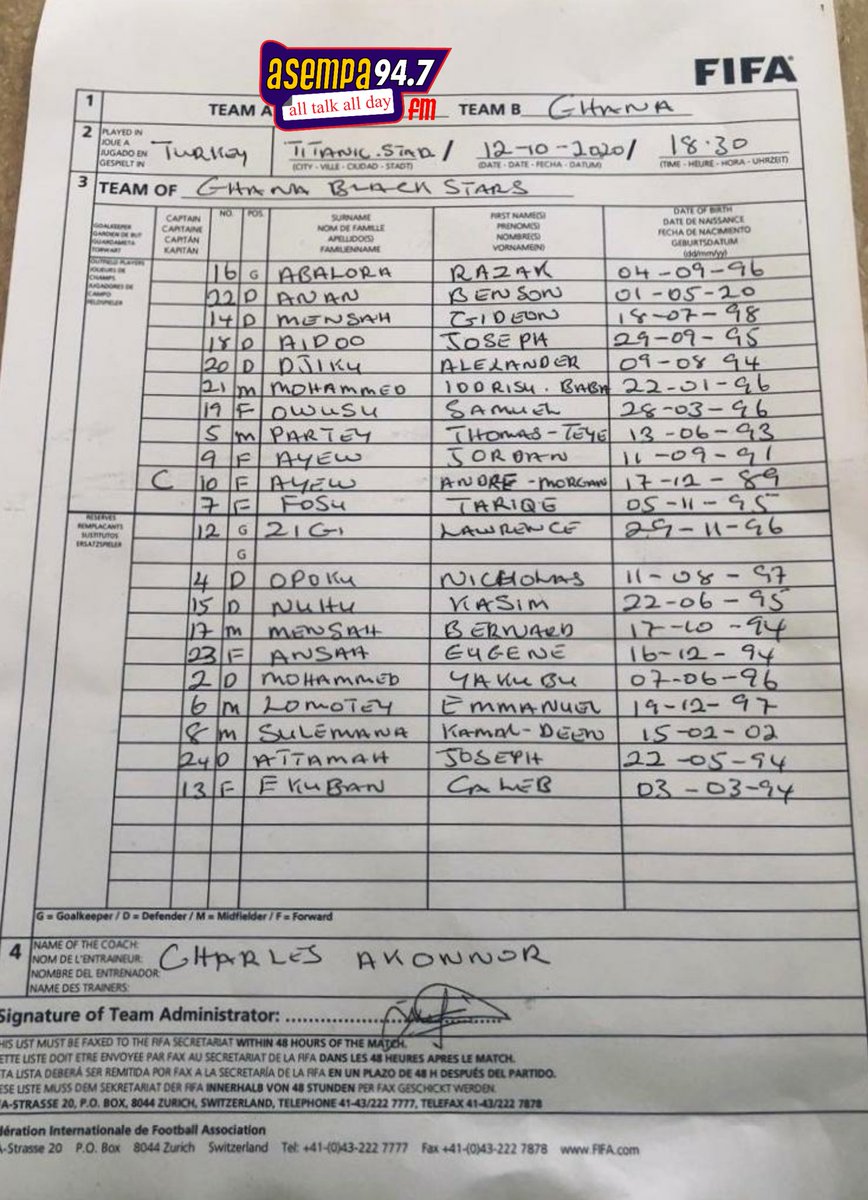 asempa 94.7
all talk all day
fm
FIFA
1 TEAM A TEAM B GHANA
2 PLAYED IN
JOUE A
JUGADO EN
GESPIELT IN
TURKEY TITANIC.STAD / 12-10-2020 / 18.30
(CITY - VILLE - CIUDAD - STADT) (DATE - DATE - FECHA - DATUM) (TIME - HEURE - HORA - UHRZEIT)
3 TEAM OF GHANA BLACK STARS
GOALKEEPER
GARDIEN DE BUT
GUARDAMETA
TORWART
OUTFIELD PLAYERS
JOUEURS DE
CHAMPS
JUGADORES DE
CAMPO
FELDSPIELER
CAPTAIN
CAPITAINE
CAPITÁN
KAPITÄN
NO. POS.
SURNAME
NOM DE FAMILLE
APELLIDO(S)
FAMILIENNAME
FIRST NAME(S)
PRENOM(S)
NOMBRE(S)
VORNAME(N)
DATE OF BIRTH
DATE DE NAISSANCE
FECHA DE NACIMIENTO
GEBURTSDATUM
(dd/mm/yy)
16 G ABALORA RAZAK 04-09-96
22 D ANAN BENSON 01-05-20
14 D MENSAH GIDEON 18-07-98
18 D AIDOO JOSEPH 29-09-95
20 D DJIKU ALEXANDER 09-08 94
21 M MOHAMMED IDDRISU.BABA 22-01-96
19 F OWUSU SAMUEL 28-03-96
5 M PARTEY THOMAS-TEYE 13-06-93
9 F AYEW JORDAN 11-09-91
C 10 F AYEW ANDRE-MORGAN 17-12-89
7 F FOSU TARIQE 05-11-95
RESERVES
REMPLACANTS
SUSTITUTOS
ERSATZSPIELER
12 G ZIGI LAWRENCE 29-11-96
G
4 D OPOKU NICHOLAS 11-08-97
15 D NUHU KASIM 22-06-95
17 M MENSAH BERNARD 17-10-94
23 F ANSAH EUGENE 16-12-94
2 D MOHAMMED YAKUBU 07-06-96
6 M LOMOTEY EMMANUEL 19-12-97
8 M SULEMANA KAMAL-DEEN 15-02-02
24 D ATTAMAH JOSEPH 22-05-94
13 F EKUBAN CALEB 03-03-94
G = Goalkeeper / D = Defender / M = Midfielder / F = Forward
4 NAME OF THE COACH:
NOM DE L'ENTRAINEUR:
NOMBRE DEL ENTRENADOR:
NAME DES TRAINERS:
CHARLES AKONNOR
Signature of Team Administrator:
HIS LIST MUST BE FAXED TO THE FIFA SECRETARIAT WITHIN 48 HOURS OF THE MATCH.
ETTE LISTE DOIT ETRE ENVOYEE PAR FAX AU SECRETARIAT DE LA FIFA DANS LES 48 HEURES APRES LE MATCH.
TA LISTA DEBERÁ SER REMITIDA POR FAX A LA SECRETARÍA DE LA FIFA EN UN PLAZO DE 48 H DESPUÉS DEL PARTIDO.
ESE LISTE MUSS DEM SEKRETARIAT DER FIFA INNERHALB VON 48 STUNDEN PER FAX GESCHICKT WERDEN.
A-STRASSE 20, P.O. BOX, 8044 ZURICH, SWITZERLAND, TELEPHONE 41-43/222 7777, TELEFAX 41-43/222 7878
dération Internationale de Football Association
A-Strasse 20 P.O. Box 8044 Zurich Switzerland Tel: +41-(0)43-222 7777 Fax +41-(0)43-222 7878 www.FIFA.com